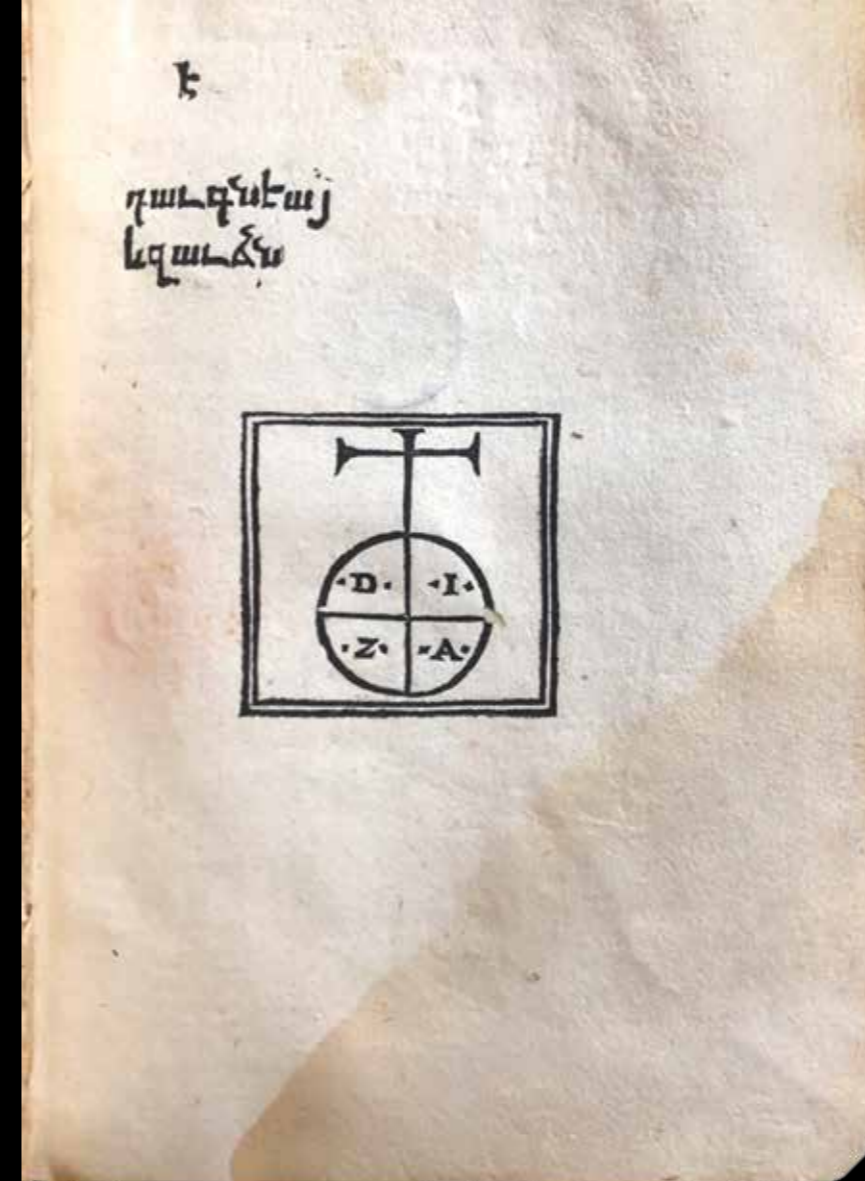 է
դաւգնէայ
եզաւճն
·D· ·I·
·Z· ·A·